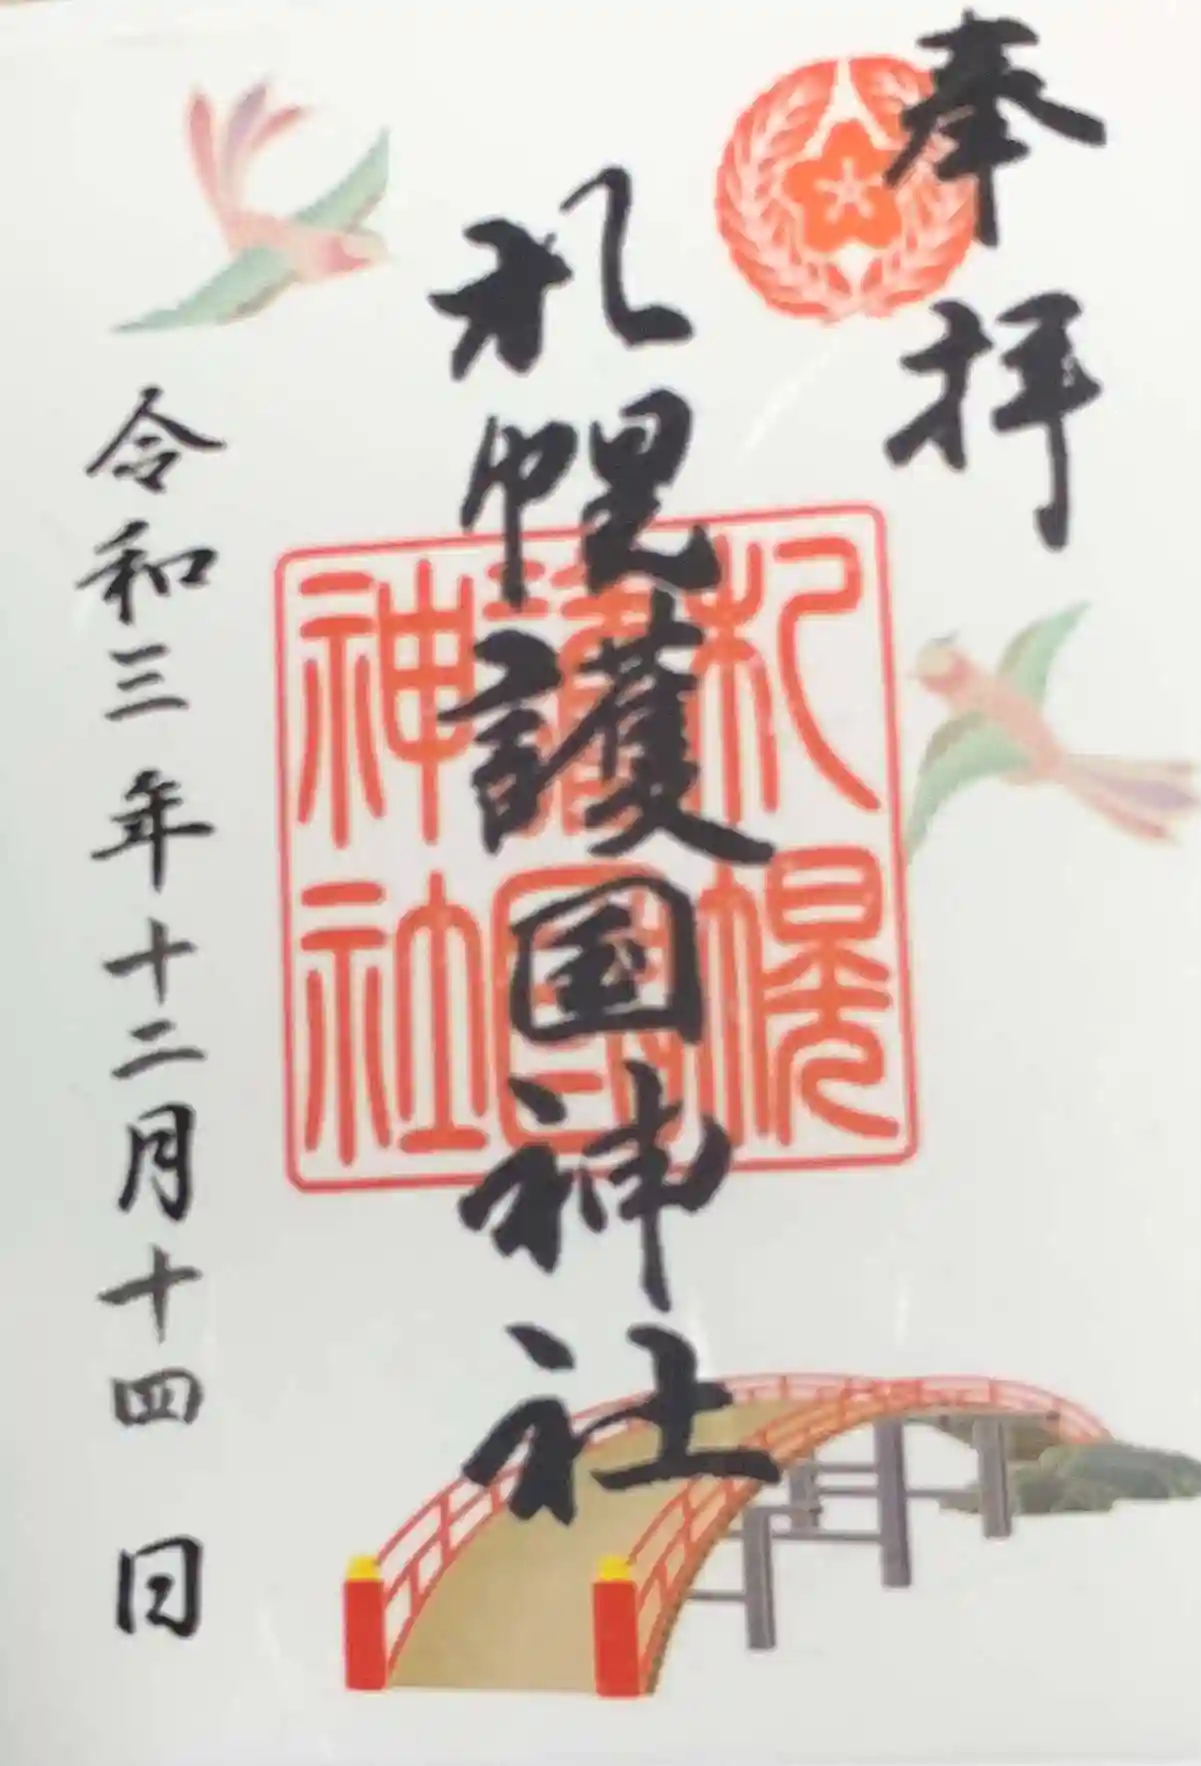 奉拝
札幌護国神社
札幌
護國
神社
令和三年十二月十四日